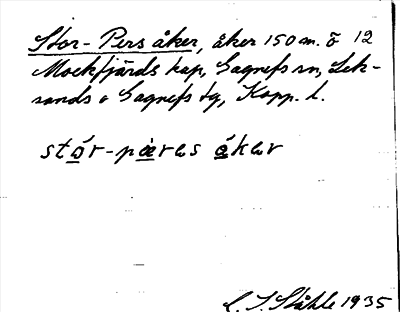 Stor-Pers åker, åker 150 m. ö 12
Mockfjärds kap, Gagnefs sn, Lek-
sands o Gagnefs tg, Kopp. l.
stór-pæ̀ras åkar
C. I. Ståhle 1935